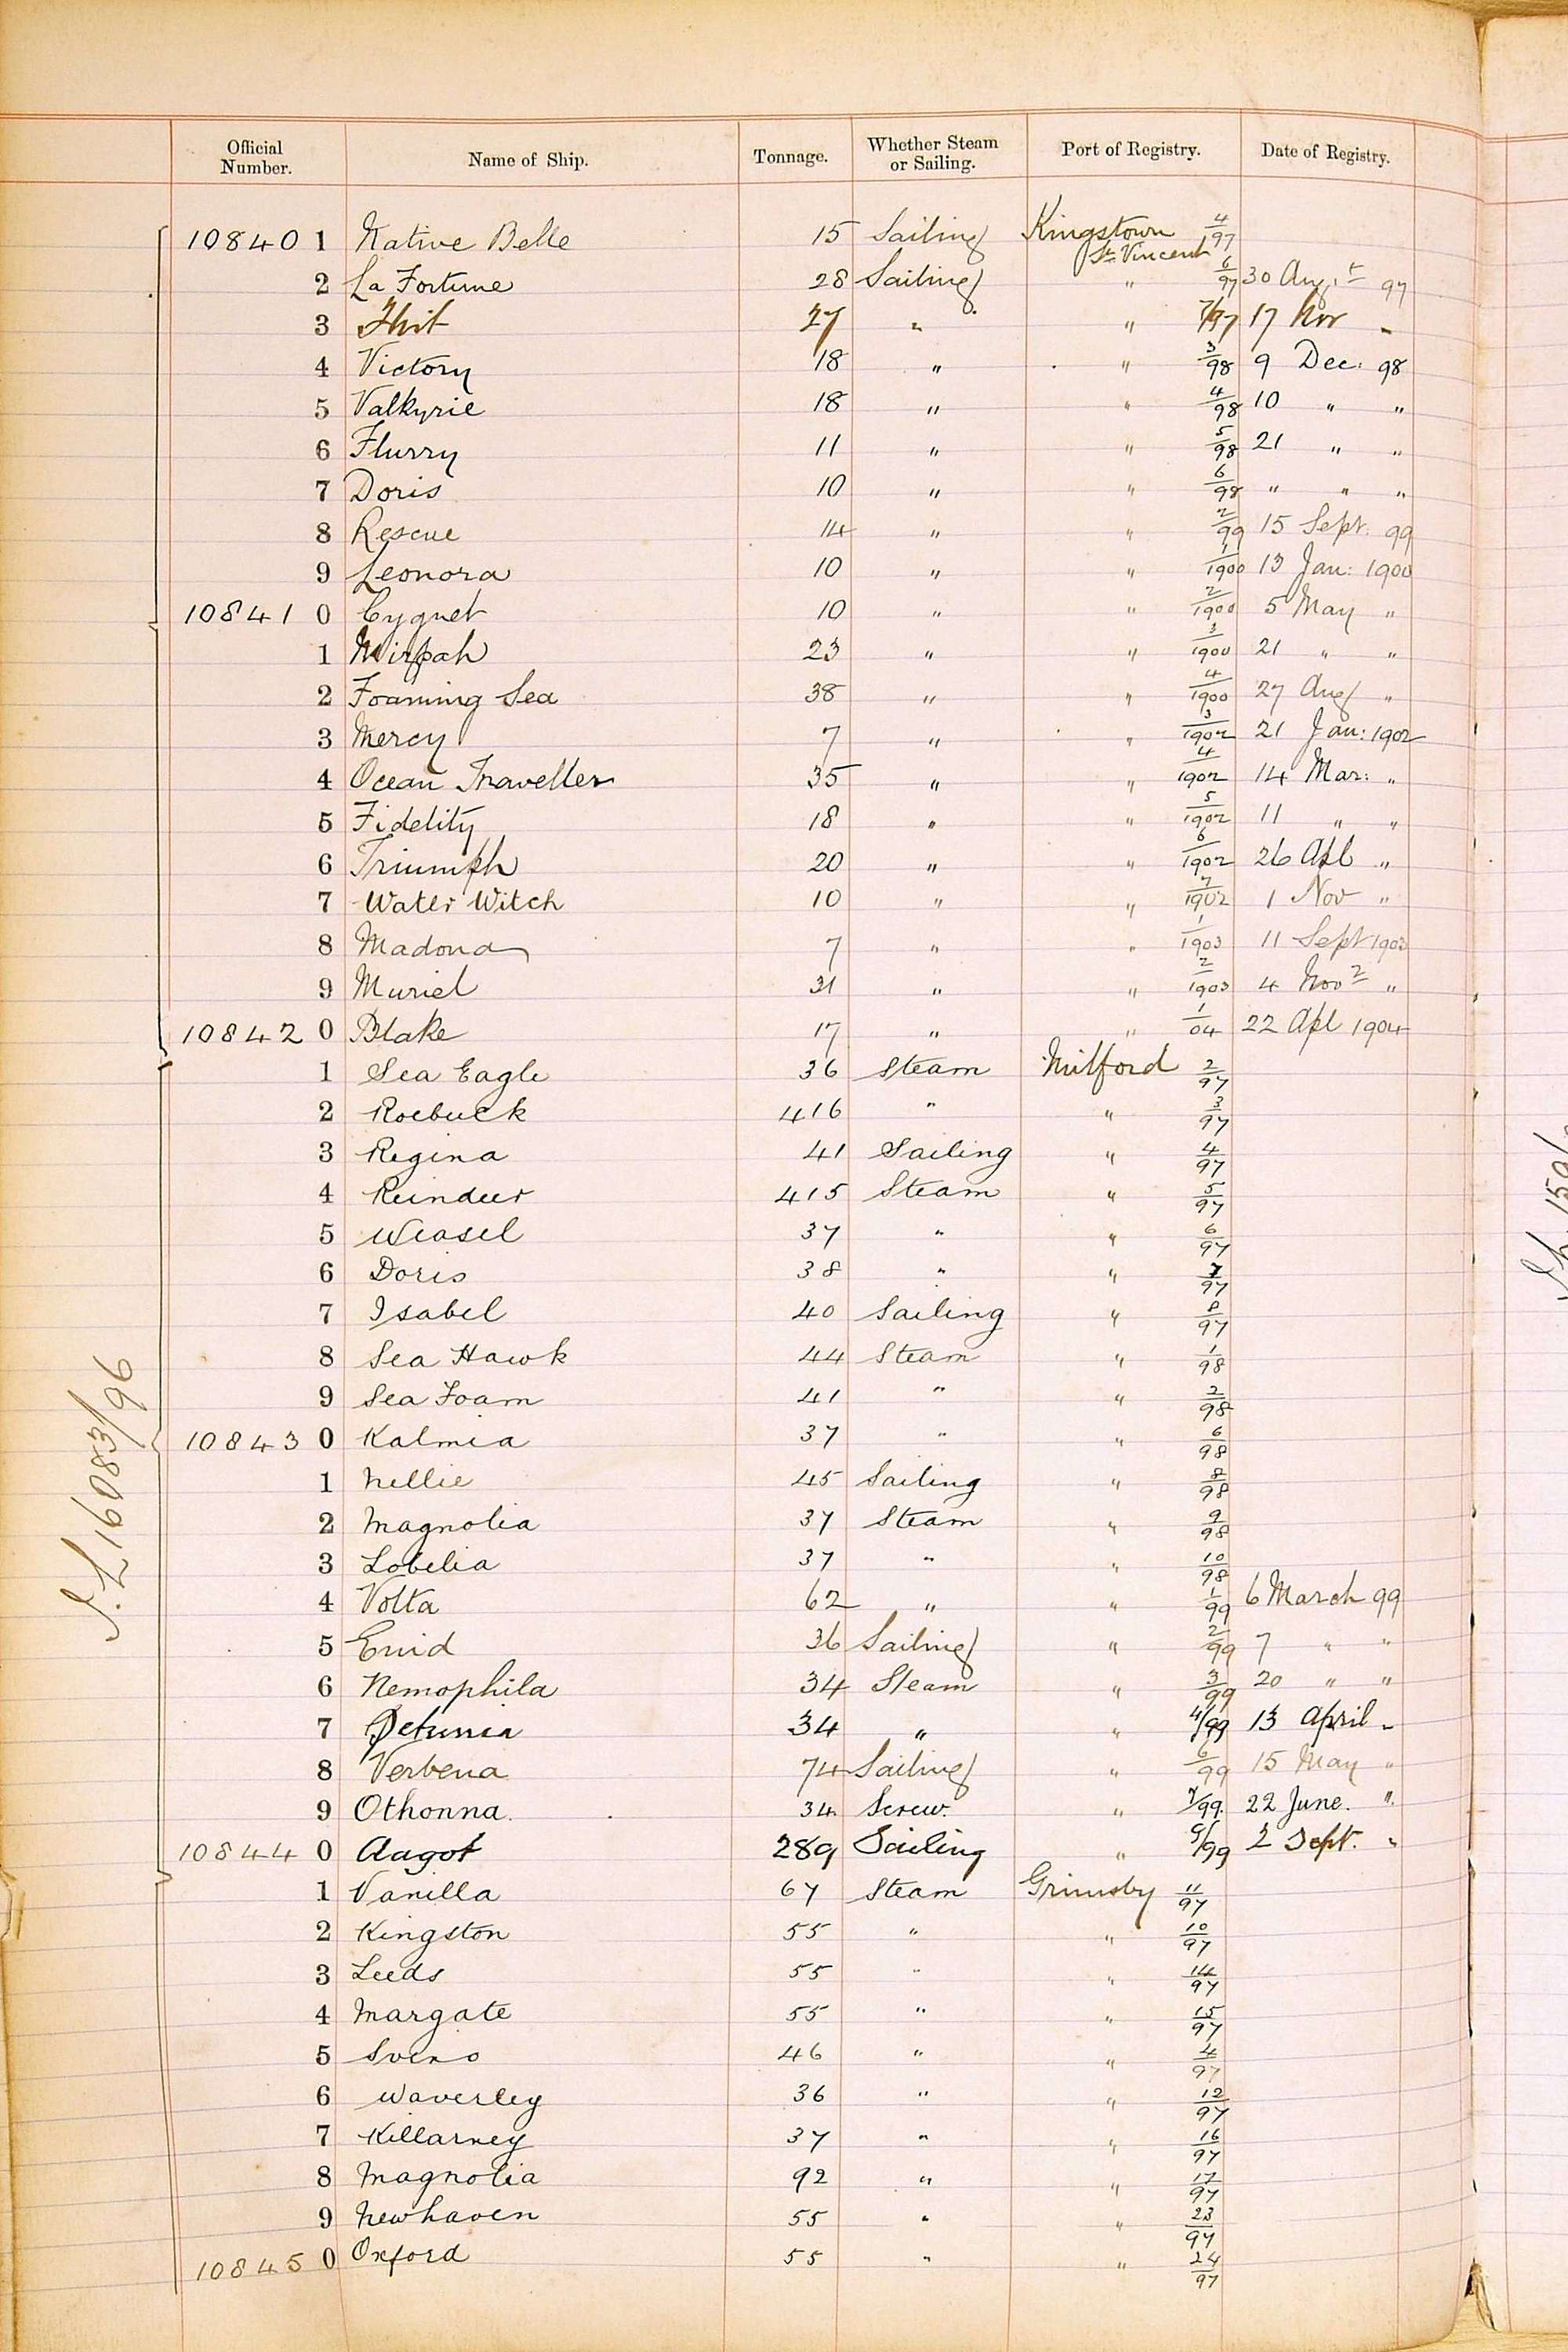 Official Number. Name of Ship. Tonnage. Whether Steam or Sailing. Port of Registry. Date of Registry.
10840 1 Native Belle 15 Sailing Kingstown St. Vincent 4/97
2 La Fortune 28 Sailing " 6/97 30 Augt 97
3 27 " " 7/97 17 Nov "
4 Victory 18 " " 3/98 9 Dec: 98
5 Valkyrie 18 " " 4/98 10 " "
6 Flurry 11 " " 5/98 21 " "
7 Doris 10 " " 6/98 " " "
8 Rescue 14 " " 2/99 15 Sept: 99
9 Leonora 10 " " 1/1900 13 Jan: 1900
10841 0 Cygnet 10 " " 2/1900 5 May "
1 Mizpah 23 " " 3/1900 21 " "
2 Foaming Sea 38 " " 4/1900 27 Aug "
3 Mercy 7 " " 3/1902 21 Jan: 1902
4 Ocean Traveller 35 " " 4/1902 14 Mar: "
5 Fidelity 18 " " 5/1902 11 " "
6 Triumph 20 " " 6/1902 26 Apl "
7 Water Witch 10 " " 7/1902 1 Nov "
8 Madona 7 " " 1/1903 11 Sept 1903
9 Muriel 31 " " 2/1903 4 Novr "
10842 0 Blake 17 " " 1/04 22 Apl 1904
1 Sea Eagle 36 Steam Milford 2/97
2 Roebuck 416 " " 3/97
3 Regina 41 Sailing " 4/97
4 Reindeer 415 Steam " 5/97
5 Weasel 37 " " 6/97
6 Doris 38 " " 7/97
7 Isabel 40 Sailing " 8/97
8 Sea Hawk 44 Steam " 1/98
9 Sea Foam 41 " " 2/98
10843 0 Kalmia 37 " " 6/98
1 Nellie 45 Sailing " 8/98
2 Magnolia 37 Steam " 9/98
3 Lobelia 37 " " 10/98
4 Volta 62 " " 1/99 6 March 99
5 Enid 36 Sailing " 2/99 7 " "
6 Nemophila 34 Steam " 3/99 20 " "
7 Petunia 34 " " 4/99 13 April "
8 Verbena 74 Sailing " 6/99 15 May "
9 Othonna. 34 Screw. " 7/99. 22 June. "
10844 0 Aagot 289 Sailing " 9/99 2 Sept. "
1 Vanilla 67 Steam Grimsby 11/97
2 Kingston 55 " " 10/97
3 Leeds 55 " " 14/97
4 Margate 55 " " 15/97
5 46 " " 4/97
6 Waverley 36 " " 12/97
7 Killarney 37 " " 16/97
8 Magnolia 92 " " 17/97
9 Newhaven 55 " " 23/97
10845 0 Oxford 55 " " 24/97
S.L 16083/96